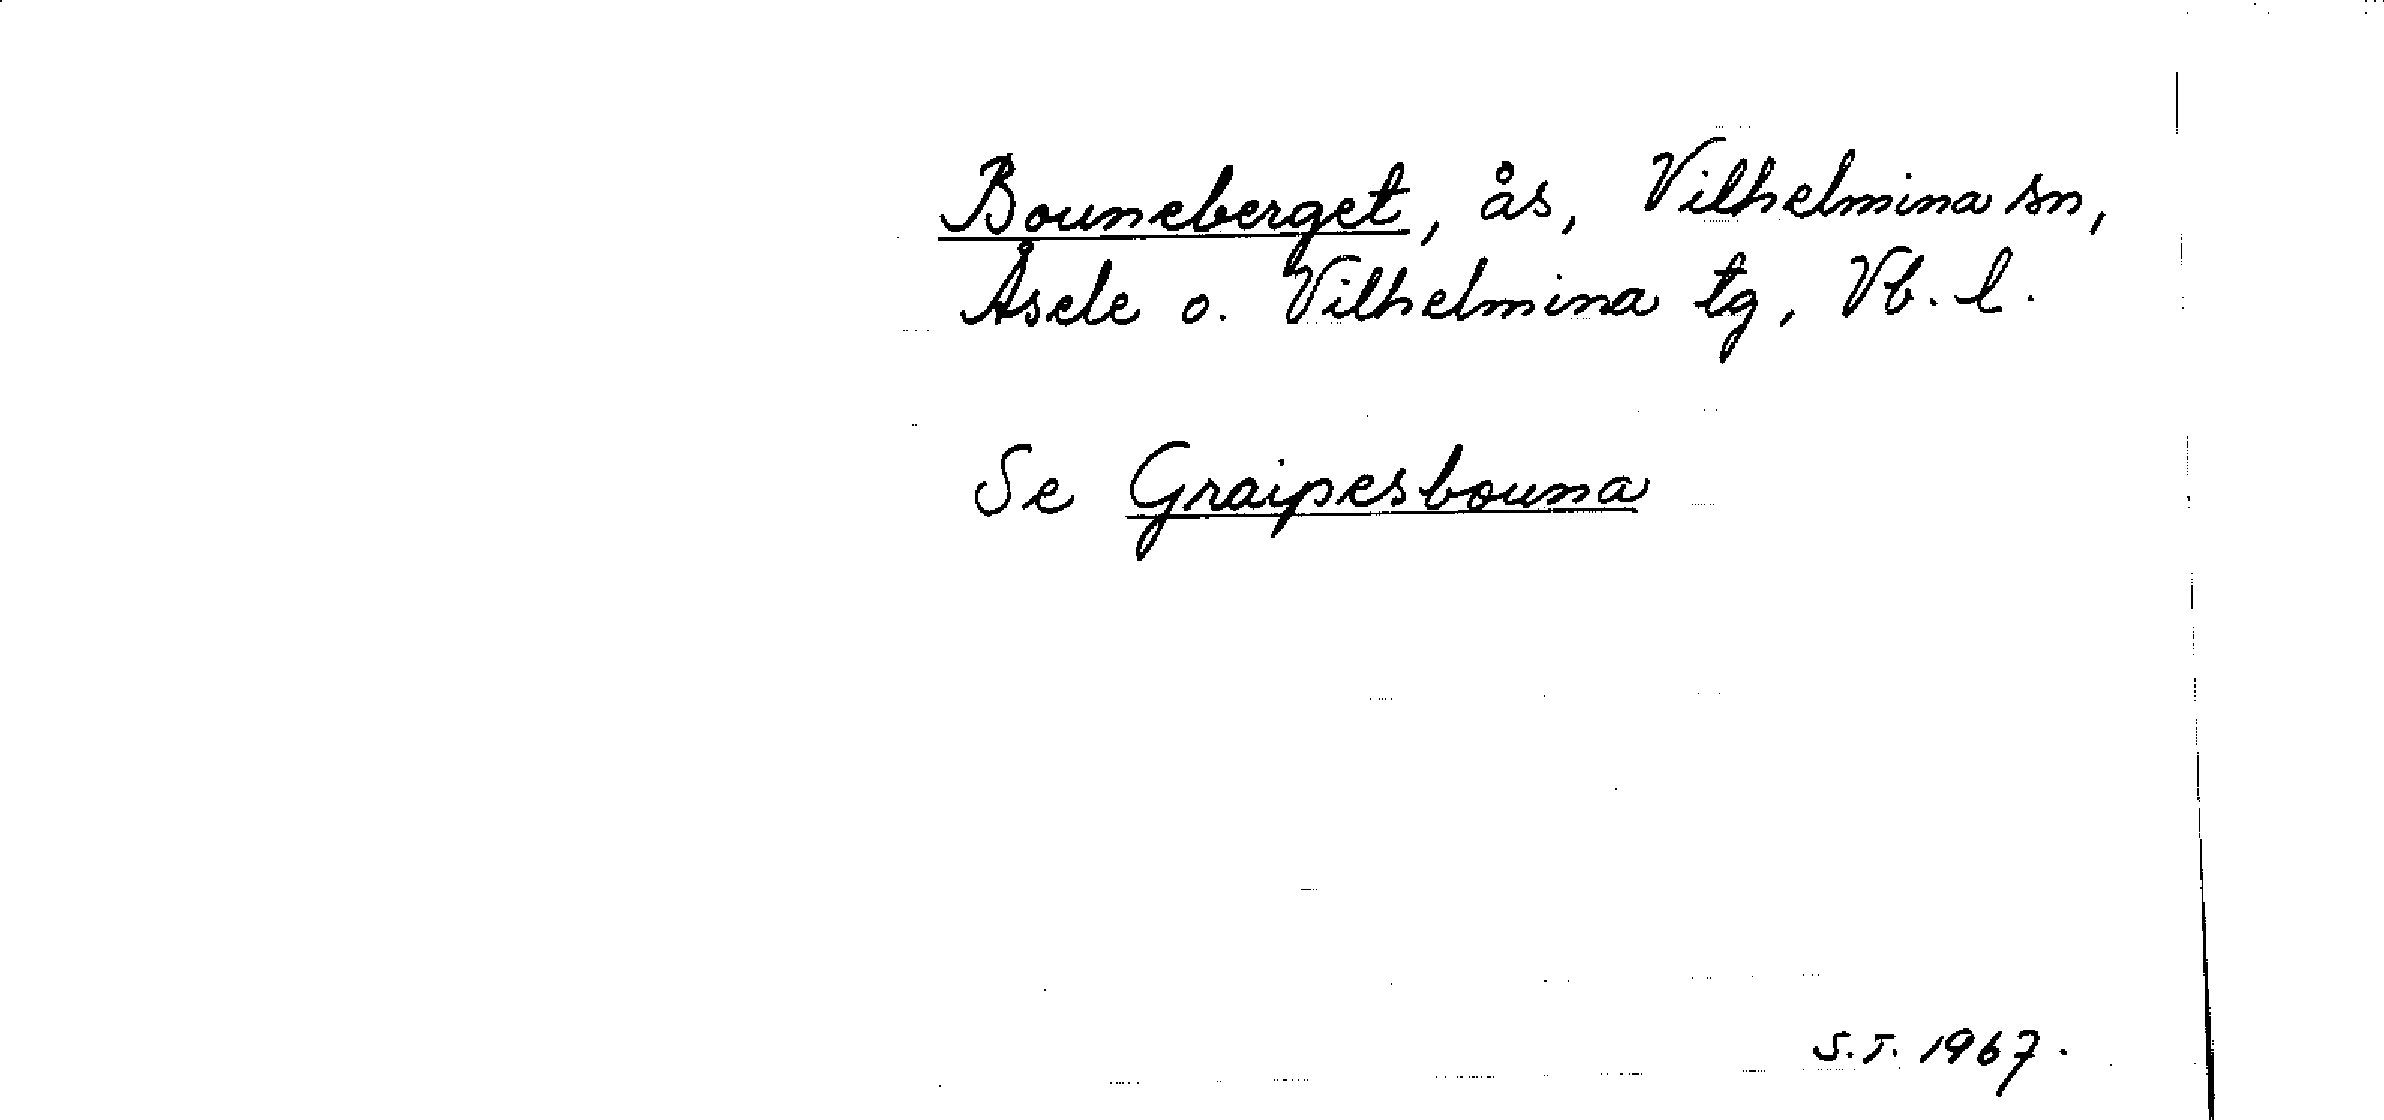 Bouneberget, ås, Vilhelmina sn,
Åsele o. Vilhelmina tg, Vb. l.
Se Graipesbouna
S.T. 1967.